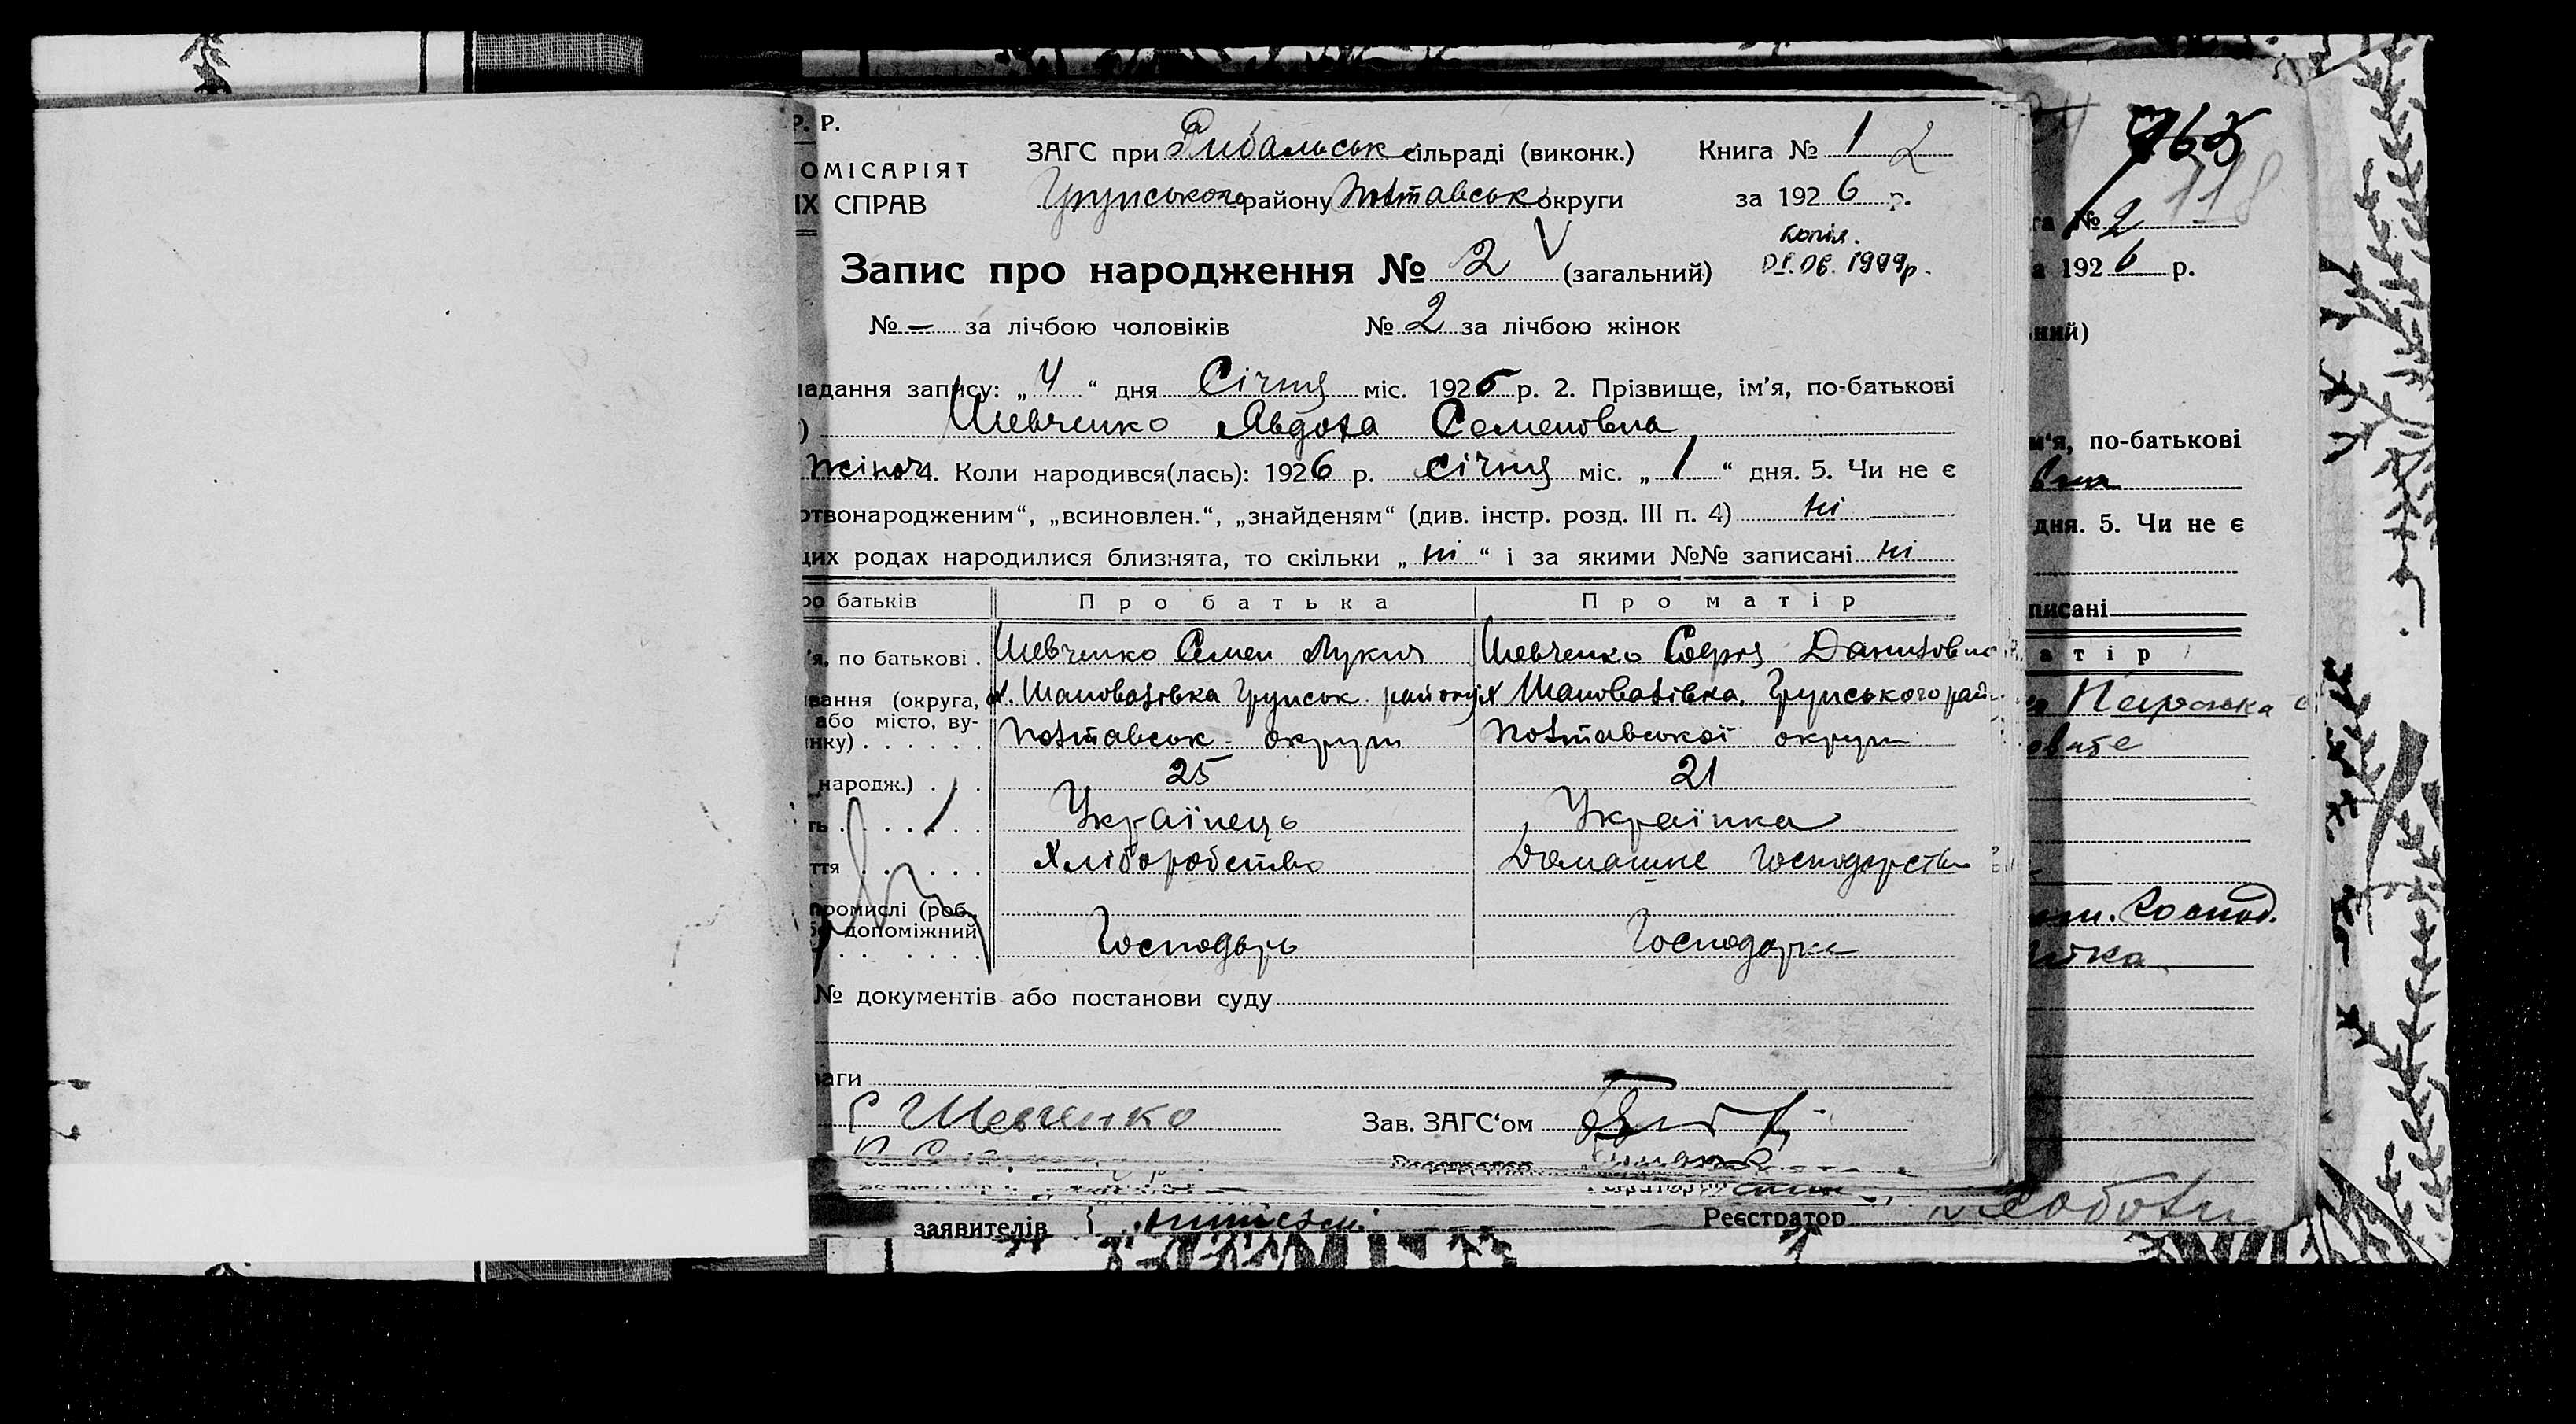 Р. Р.
ОМІСАРІЯТ
ІХ СПРАВ
ЗАГС при Рибальськ сільраді (виконк.) Книга № 1 2
Грунського району Полтавськ округи за 1926 р.
копія.
01.06.1999р.
Запис про народження № 2 (загальний)
№ – за лічбою чоловіків № 2 за лічбою жінок
ладання запису: „4“ дня Січня міс. 1926 р. 2. Прізвище, ім'я, по-батькові
) Шевченко Явдоха Семеновна
жіноч 4. Коли народився(лась): 1926 р. січня міс. „1“ дня. 5. Чи не є
ртвонародженим“, „всиновлен.“, „знайденям“ (див. інстр. розд. III п. 4) ні
цих родах народилися близнята, то скільки „ні“ і за якими №№ записані ні
ро батьків Про батька Про матір
'я, по батькові . Шевченко Семен Лукич Шевченко Софія Даниловна
вання (округа, х. Шаповалівка Грунськ району х Шаповалівка, Грунського рай
або місто, ву-
инку) . . . . . . Полтавськ округи Полтавської округи
народж.) . . . 25 21
ть . . . . . . . Українець Українка
ття . . . . . . Хліборобство Домашнє господарство
промислі (роб.,
допоміжний
Господарь Господарка
№ документів або постанови суду
ваги
С Шевченко Зав. ЗАГС'ом
заявителів Реєстратор
765
118
га № 2
а 1926 р.
ьний)
м'я, по-батькові
вна
дня. 5. Чи не є
писані
а т і р
Господ.